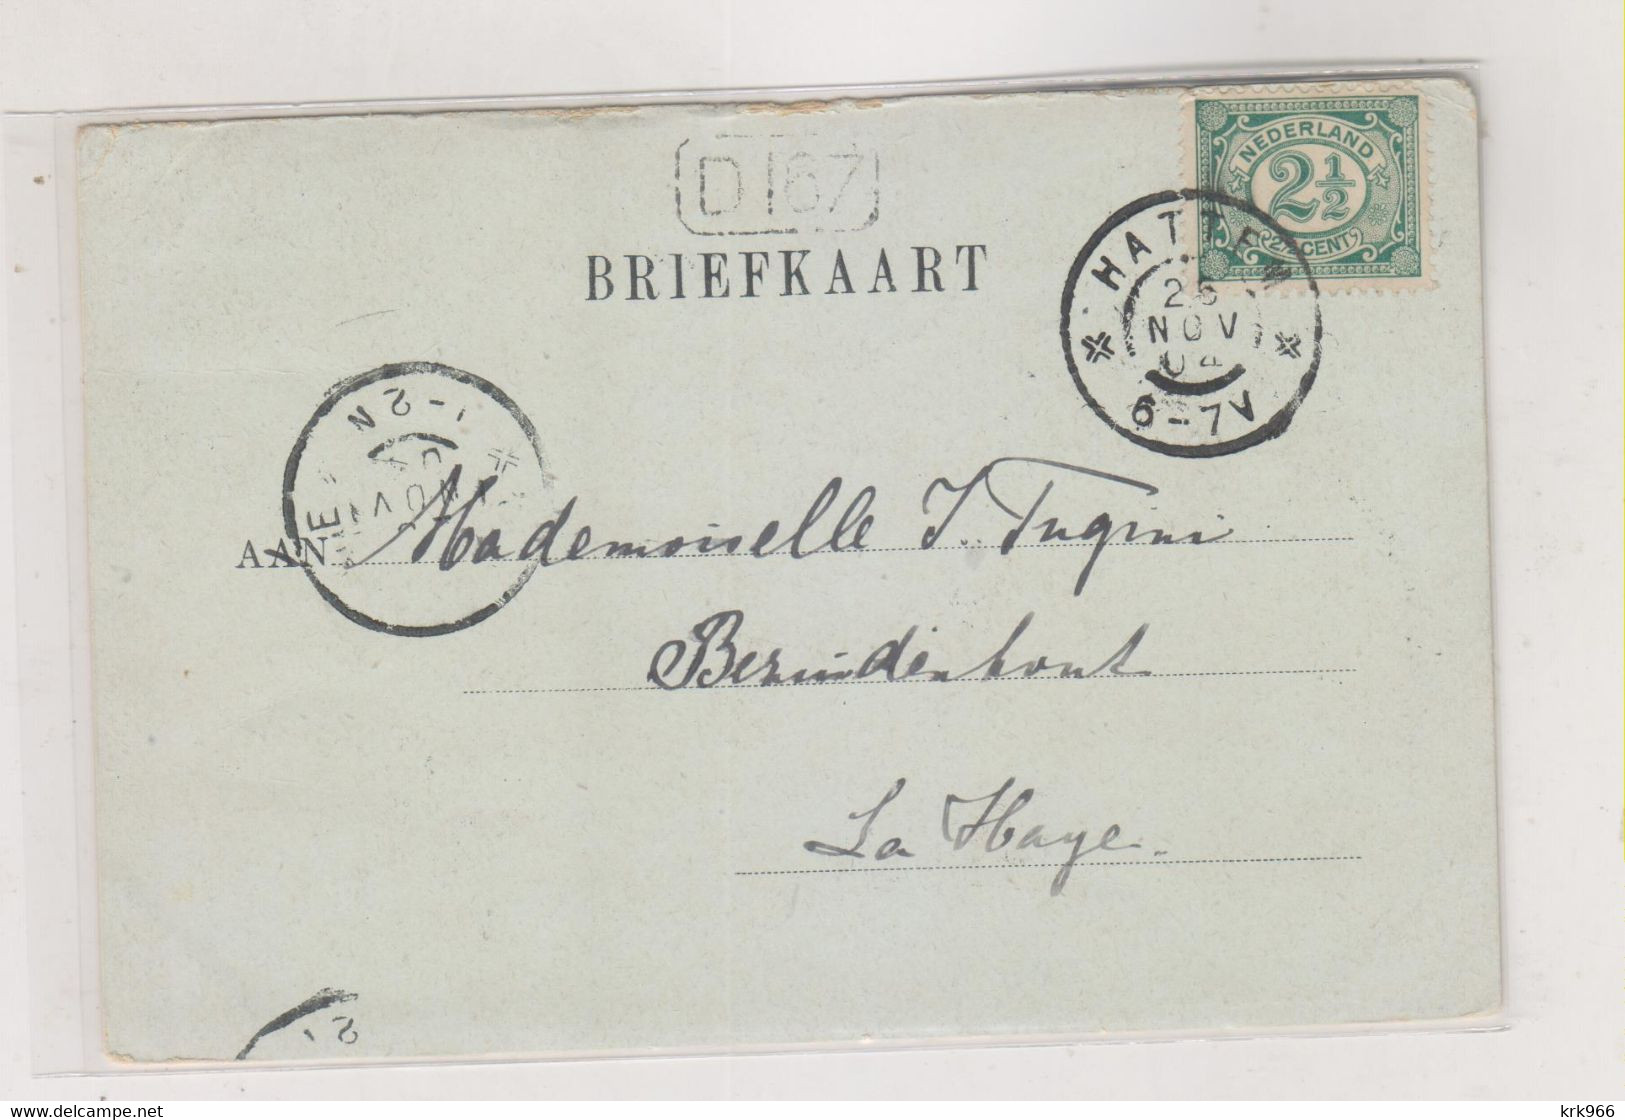 NEDERLAND
2 1/2
2½ CENT
D 167
BRIEFKAART
HATTEM
NOV
04
6-7V
1-2N
NOV
AAN Mademoiselle J. Tugini
Bezuidenhout
La Haye.
delcampe.net
krk966